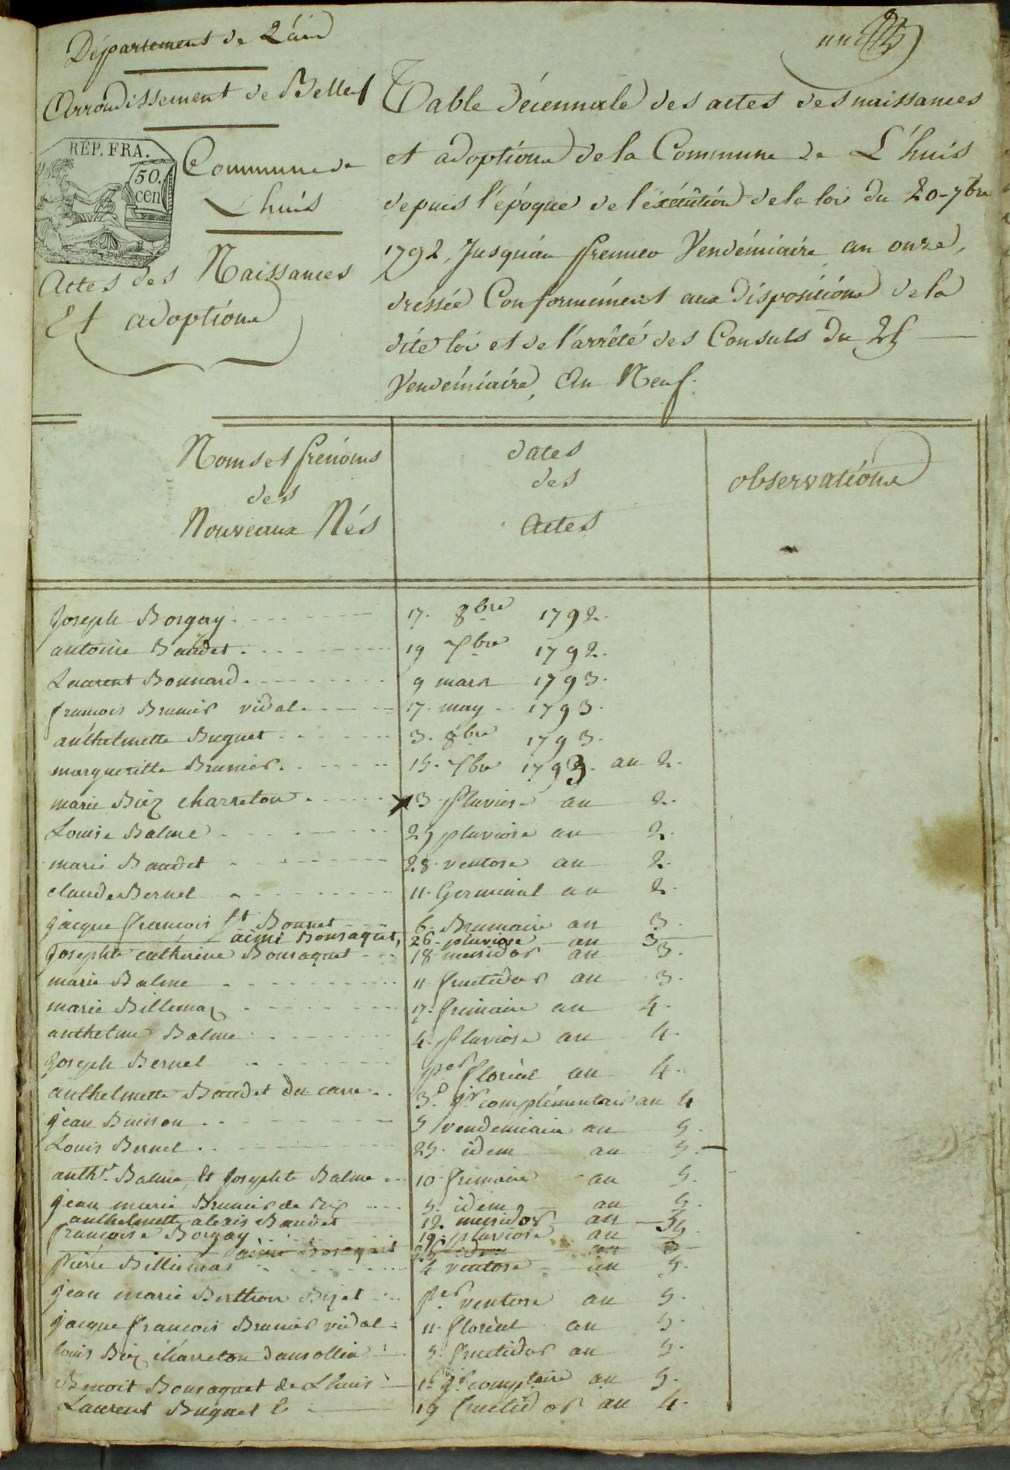 Département de L'ain
Arrondissement de Belley
REP. FRA.
50.
cen
Commune de
Lhuis
Actes des Naissances
Et adoptions
Table décennale des actes des naissances
et adoptions de la Commune de L'huis
depuis l'époque de l'éxécution de la loi du 20-7bre
1792, Jusqu'au premier Vendémiaire an onze,
dressée Conformément aux dispositions de la
dite loi et de l'arrêté des Consuls du 25
Vendémiaire, An Neuf.
Noms et prénoms
des
Nouveaux Nés
dates
des
Actes
observations
Joseph Borgey 17. 8bre 1792.
antoine Baudet 19 7bre 1792.
Laurent Bonnard 9 mars 1793.
francois Brunier vidal 17. may 1793.
anthelmette Buguet 3. 8bre 1793.
margueritte Brunier 15. 7bre 1793. an 2.
marie Biez charreton 13 pluviose an 2.
Louise Balme 29 pluviose an 2.
marie Baudet 28. ventose an 2.
claude Bernet 11. Germinal an 2.
jacque francois Bonnet 6. Brumaire an 3.
aimé Bonsaquet, 26. pluviose an 3
Josephte catherine Bonsaquet 18 messidor an 3.
marie Balme 11 fructidor an 3.
marie Billemaz 17. frimaire an 4.
anthelme Balme 4. pluviose an 4.
Joseph Bernet per floréal an 4.
anthelmette Baudet du carre 3e jr complémentaire an 4
jean Buisson 5 vendemiaire an 5.
Louis Bernet 25. idem an 5.
anthe. Balme, et Josephte Balme 10 frimaire an 5.
jean marie Brunier de Rix 5. idem an 5.
anthelmette alexis Baudet 12. messidor an 5
francoise Borgey 19. pluviose an 5.
aimé Bonsaquet
pierre Billiemas 4 ventose an 5.
jean marie Berthion Bizet per ventose an 5.
jacque francois Brunier vidal 11. floréal an 5.
louis Biez charreton dansollin 5. fructidor an 5.
Benoit Bonsaquet de Lhuis 1er jr complaire an 5.
Laurent Buguet 19 fructidor an 4.